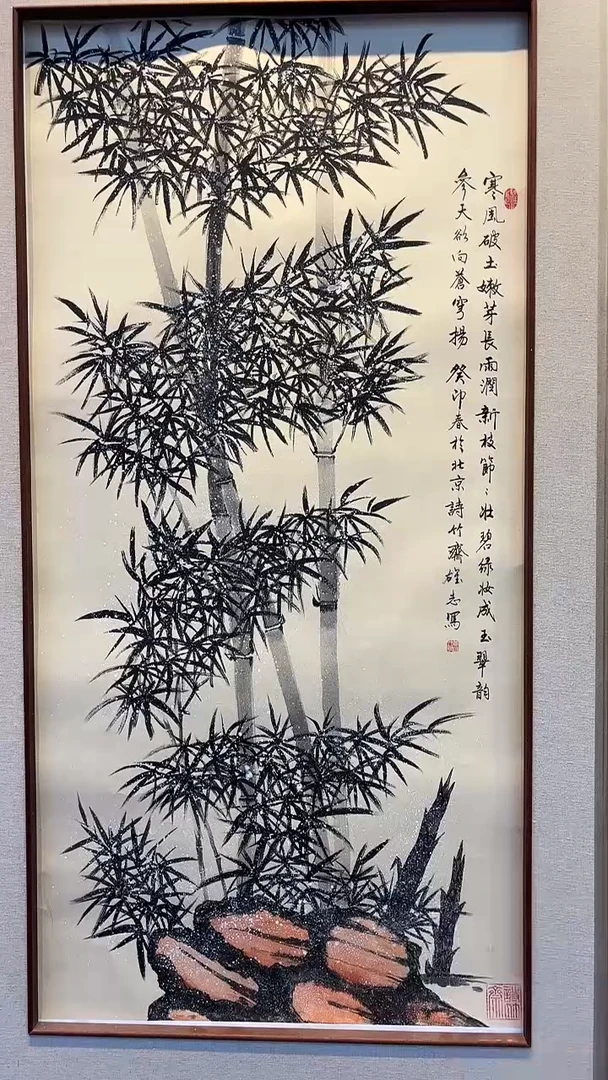 寒風破土嫩芽長雨潤新枝節〻壯碧綠妝成玉翠韵
參天欲向蒼穹揚 癸卯春於北京詩竹齋雄志寫